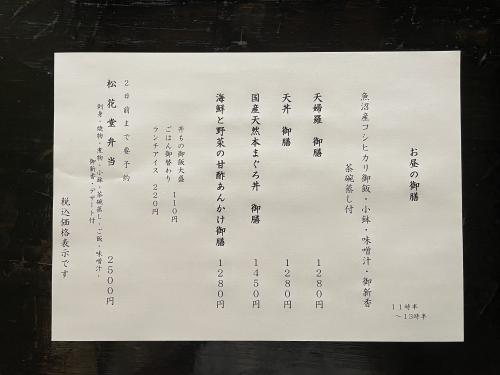 お昼の御膳
11時半
～13時半
魚沼産コシヒカリ御飯・小鉢・味噌汁・御新香
茶碗蒸し付
天婦羅 御膳 1280円
天丼 御膳 1280円
国産天然本まぐろ丼 御膳 1450円
海鮮と野菜の甘酢あんかけ御膳 1280円
丼もの御飯大盛 110円
ごはん御替わり
ランチアイス 220円
2日前まで要予約
松花堂弁当 2500円
刺身・焼物・煮物・小鉢・茶碗蒸し・ご飯・味噌汁・
御新香・デザート付
税込価格表示です